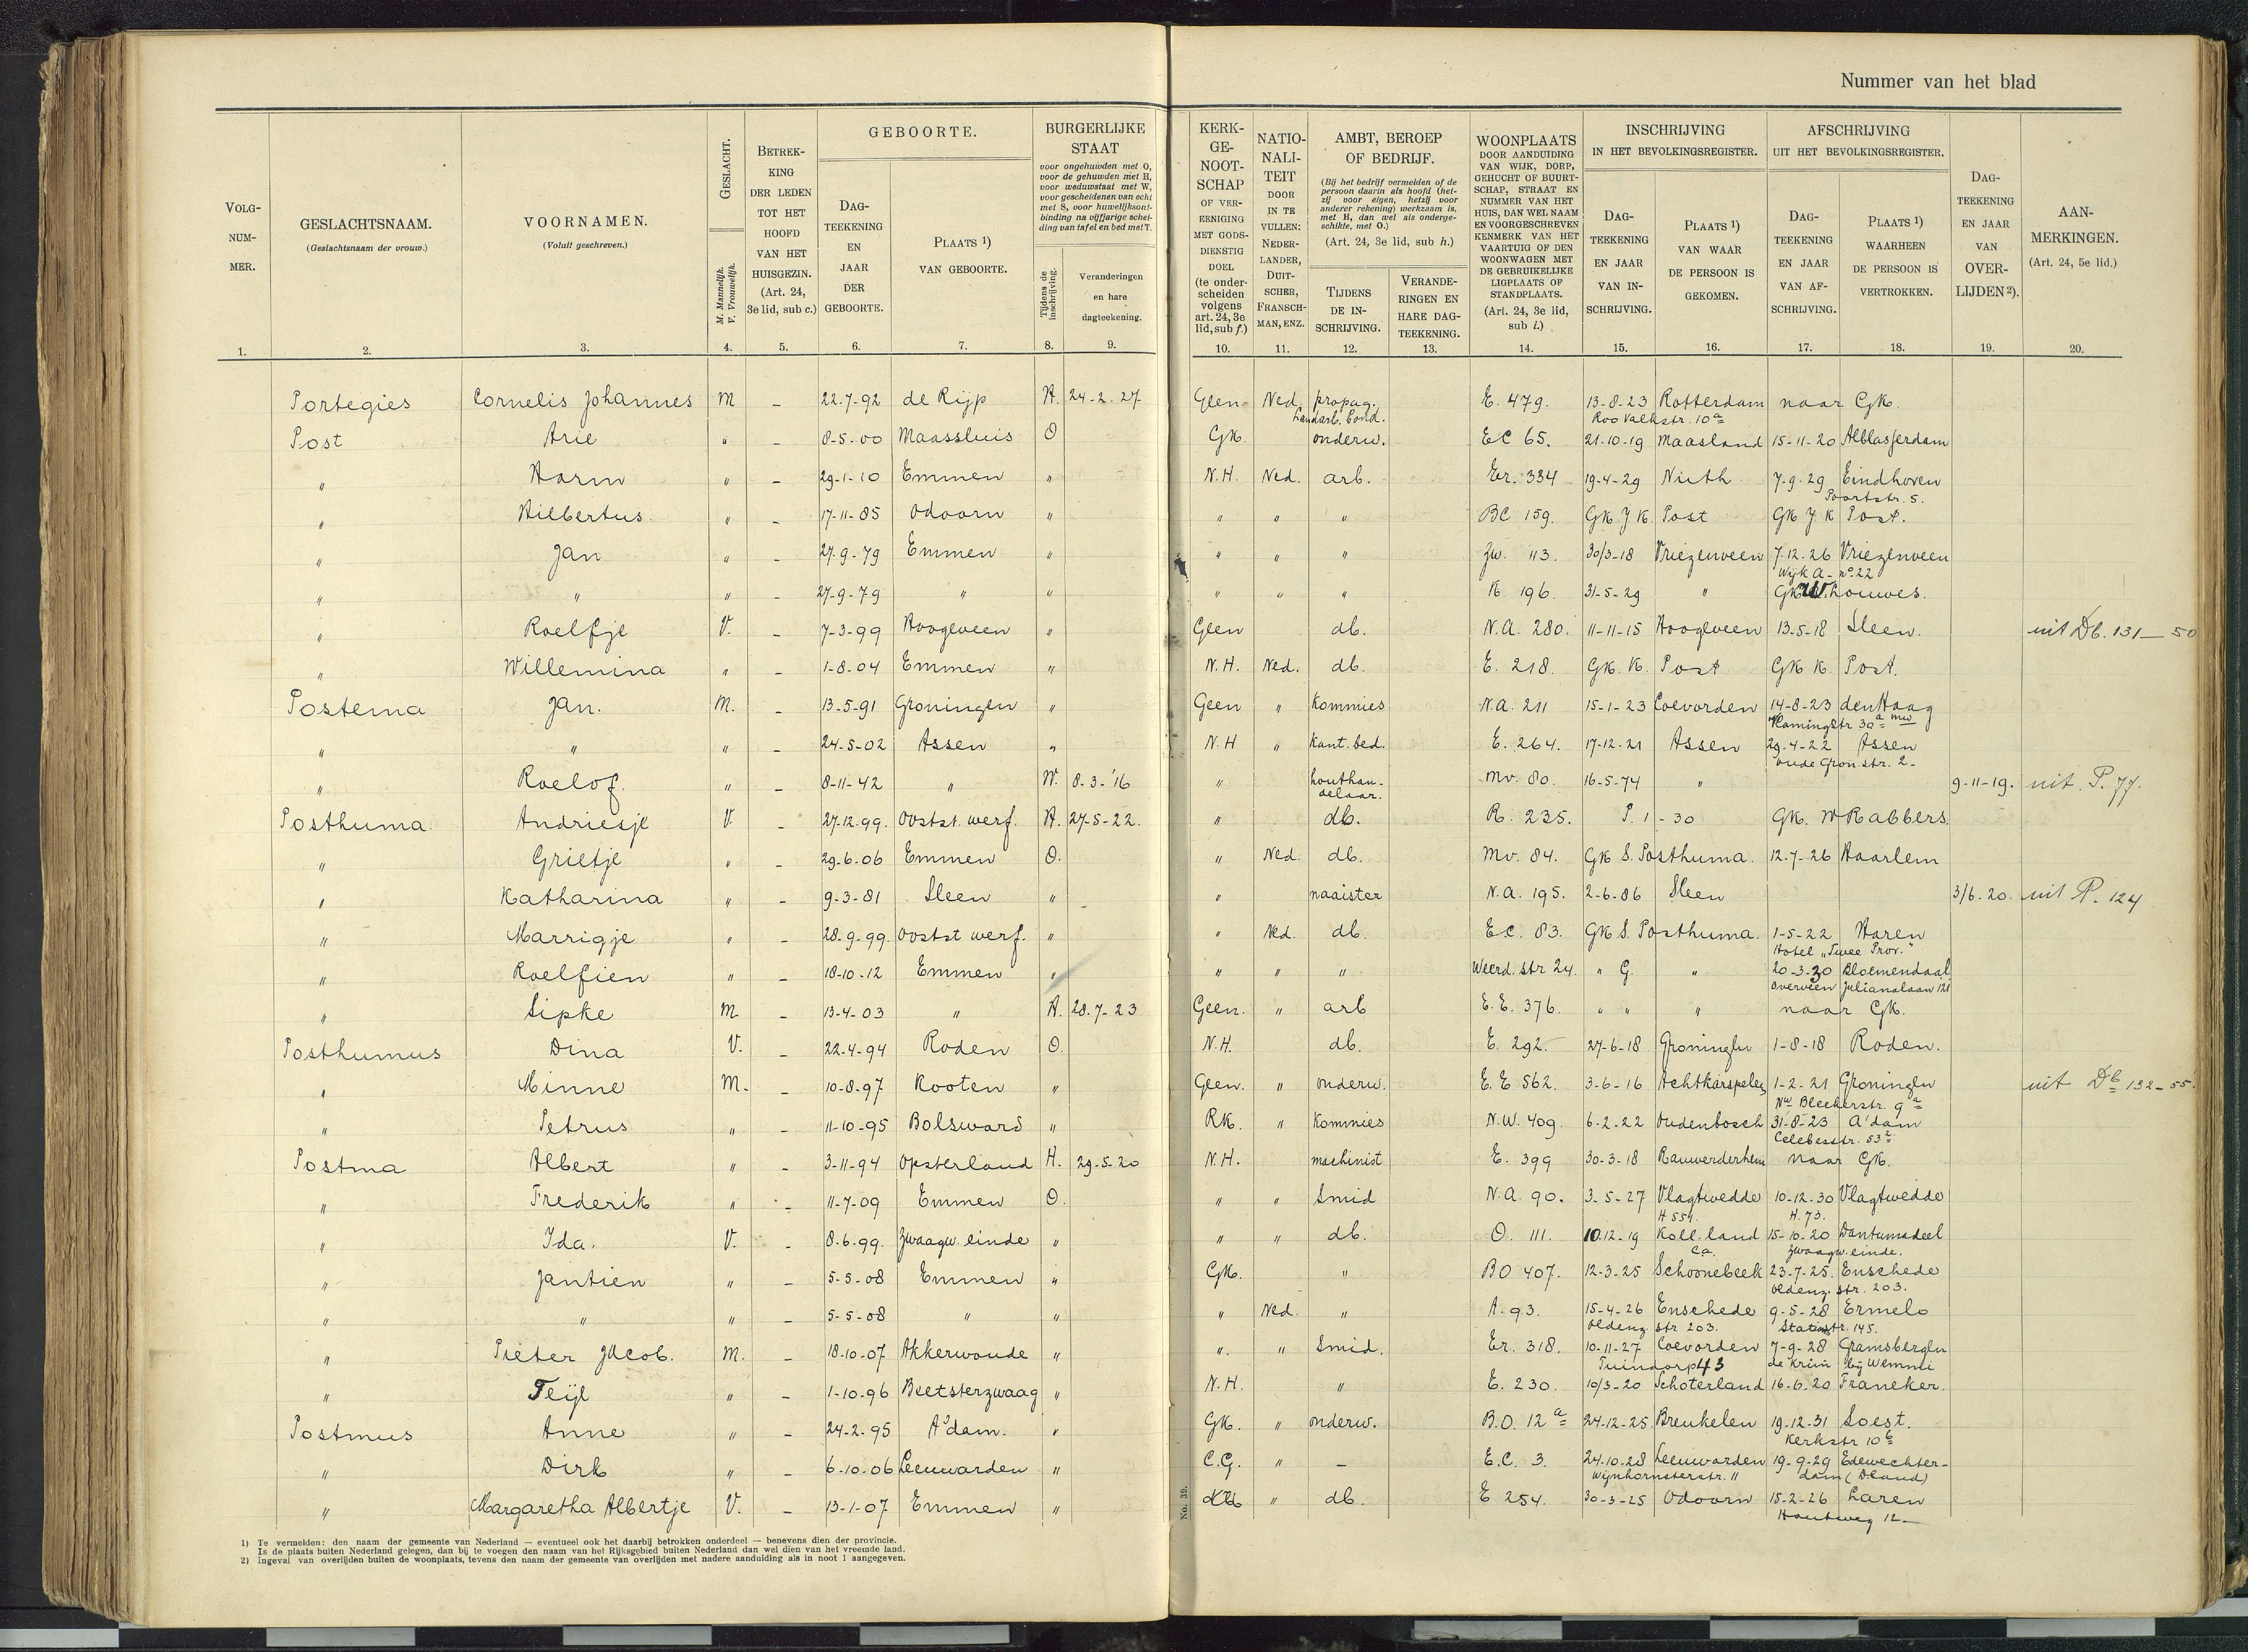 Nummer van het blad
VOLG-NUM-MER. GESLACHTSNAAM. (Geslachtsnaam der vrouw.) VOORNAMEN. (Voluit geschreven.) GESLACHT. M. Mannelijk. V. Vrouwelijk. BETREK-KING DER LEDEN TOT HET HOOFD VAN HET HUISGEZIN. (Art. 24, 3e lid, sub c.) GEBOORTE. DAG-TEEKENING EN JAAR DER GEBOORTE. PLAATS 1) VAN GEBOORTE. BURGERLIJKE STAAT voor ongehuwden met O, voor de gehuwden met H, voor weduwstaat met W, voor gescheidenen van echt met S, voor huwelijksont-binding na vijfjarige schei-ding van tafel en bed met T. Tijdens de inschrijving. Veranderingen en hare dagteekening.
KERK-GE-NOOT-SCHAP OF VER-EENIGING MET GODS-DIENSTIG DOEL (te onder-scheiden volgens art. 24, 3e lid, sub f.) NATIO-NALI-TEIT DOOR IN TE VULLEN: NEDER-LANDER, DUIT-SCHER, FRANSCH-MAN, ENZ. AMBT, BEROEP OF BEDRIJF. (Bij het bedrijf vermelden of de persoon daarin als hoofd (het-zij voor eigen, hetzij voor anderer rekening) werkzaam is, met H, dan wel als onderge-schikte, met O.) (Art. 24, 3e lid, sub h.) TIJDENS DE IN-SCHRIJVING. VERANDE-RINGEN EN HARE DAG-TEEKENING. WOONPLAATS DOOR AANDUIDING VAN WIJK, DORP, GEHUCHT OF BUURT-SCHAP, STRAAT EN NUMMER VAN HET HUIS, DAN WEL NAAM EN VOORGESCHREVEN KENMERK VAN HET VAARTUIG OF DEN WOONWAGEN MET DE GEBRUIKELIJKE LIGPLAATS OF STANDPLAATS. (Art. 24, 3e lid, sub i.) INSCHRIJVING IN HET BEVOLKINGSREGISTER. DAG-TEEKENING EN JAAR VAN IN-SCHRIJVING. PLAATS 1) VAN WAAR DE PERSOON IS GEKOMEN. AFSCHRIJVING UIT HET BEVOLKINGSREGISTER. DAG-TEEKENING EN JAAR VAN AF-SCHRIJVING. PLAATS 1) WAARHEEN DE PERSOON IS VERTROKKEN. DAG-TEEKENING EN JAAR VAN OVER-LIJDEN 2). AAN-MERKINGEN. (Art. 24, 5e lid.)
1. 2. 3. 4. 5. 6. 7. 8. 9. 10. 11. 12. 13. 14. 15. 16. 17. 18. 19. 20.
Portegies Cornelis Johannes M - 22-7-92 de Rijp H. 24-2-27 Geen Ned. propag. E. 479. 13-8-23 Rotterdam naar GK.
Landarb. bond. Roo Valkstr. 10a
Post Arie " 8-5-00 Maassluis O GK. onderw. EC 65. 21-10-19 Maasland 15-11-20 Alblasserdam
" Harm " - 29-1-10 Emmen " N.H. Ned. arb. Er. 334 19-4-29 Nuth 7-9-29 Eindhoven
Poortstr. 5.
" Hilbertus. " - 17-11-85 Odoorn " " " " BC 159. GK J K Post GK J K Post.
" Jan " - 27-9-79 Emmen " " " " Zw. 113. 30/3-18 Vriezenveen 7-12-26 Vriezenveen
Wijk A - no 22
" " " - 27-9-79 " " " " " K. 196. 31-5-29 " GK W. Louwes.
" Roelfje V. - 7-3-99 Hoogeveen " Geen db. N.A. 280. 11-11-15 Hoogeveen 13-5-18 Sleen. uit Db. 131-50
" Willemina " - 1-8-04 Emmen " N.H. Ned. db. E. 218. GK. K. Post GK K Post.
Postema Jan. M. - 13-5-91 Groningen " Geen " Kommies N.A. 211 15-1-23 Coevorden 14-8-23 den Haag
" " " - 24-5-02 Assen " N.H " Kant. bed. E. 264. 17-12-21 Assen 29-4-22 Assen
oude Gron. str. 2-
" Roelof. " - 8-11-42 " W. 8-3-'16 " houthan-delaar. Mv. 80. 16-5-74 " 9-11-19. uit P. 77.
Posthuma Andriesje V. - 27-12-99. Ooststwerf. H. 27-5-22. " db. R. 235. P. 1-30 GK. W Rabbers.
" Grietje " - 29-6-06 Emmen O. " Ned. db. Mv. 84. GK S. Posthuma. 12-7-26 Haarlem
" Katharina " - 9-3-81 Sleen " " naaister N.A. 195. 2-6-86 Sleen 3/6.20. uit P. 124
" Marrigje " - 28-9-99. Ooststwerf. " " Ned. db. EC. 83. GK S. Posthuma. 1-5-22 Haren
Hotel "Twee Prov."
" Roelfien " - 18-10-12 Emmen " " " " Weerd. str 24. " G. " 20-3-30 Bloemendaal
Overveen Julianalaan 121
" Sipke M - 13-4-03 " H. 28-7-23 Geen. " arb E.E. 376. " " " naar GK.
Posthumus Dina V. - 22-4-94 Roden O. N.H. db. E. 292. 27-6-18 Groningen 1-8-18 Roden.
" Minne M. - 10-8-97 Kooten " Geen. " onderw. E.E 562. 3-6-16 Achtkarspelen 1-2-21 Groningen uit Db 132-55.
Nw Bleekerstr. 9a
" Petrus " - 11-10-95 Bolsward " RK. " Kommies N.W. 409. 6-2-22 Oudenbosch 31-8-23 A'dam
Celebesstr. 53
Postma Albert " - 3-11-94 Opsterland H. 29-5-20 N.H. machinist E. 399 30-3-18 Rauwerderhem naar GK.
" Frederik " - 11-7-09 Emmen O. " " Smid N.A. 90. 3-5-27 Vlagtwedde 10-12-30 Vlagtwedde
H 554. H. 73.
" Ida. V. - 8-6-99. Zwaagw. einde " " " db. O. 111. 10-12-19 Koll. land 15-10-20 Dantumadeel
ca. Zwaagw. einde.
" Jantien " - 5-5-08 Emmen " GK. " BO 407. 12-3-25 Schoonebeek 23-7-25. Enschede
oldenz. str. 203.
" " " - 5-5-08 " " " Ned. " A. 93. 15-4-26 Enschede 9-5-28 Ermelo
oldenz. str 203. Stationstr. 145.
" Pieter Jacob. M. - 18-10-07 Akkerwoude " " " Smid. Er. 318. 10-11-27 Coevorden 7-9-28 Gramsbergen
Tuindorp 43 de Krim bij Wemmi
" Teije " - 1-10-96 Beetsterzwaag " N.H. " E. 230. 10/3-20 Schoterland 16-6-20 Franeker.
Postmus Anne " - 24-2-95 A'dam. " GK. " onderw. B.O. 12a 24-12-25 Breukelen 19-12-31 Soest.
Kerkstr 10b
" Dirk " - 6-10-06 Leeuwarden " C.G. " - E.C. 3. 24-10-28 Leeuwarden 19-9-29 Edewechter-
Wijnhornsterstr. 11 dam (Dland)
" Margaretha Albertje V. - 13-1-07 Emmen " " db. E 254. 30-3-25 Odoorn 15-2-26 Laren
Houtweg 12-
No. 39.
1) Te vermelden: den naam der gemeente van Nederland — eventueel ook het daarbij betrokken onderdeel — benevens dien der provincie.
Is de plaats buiten Nederland gelegen, dan bij te voegen den naam van het Rijksgebied buiten Nederland dan wel dien van het vreemde land.
2) Ingeval van overlijden buiten de woonplaats, tevens den naam der gemeente van overlijden met nadere aanduiding als in noot 1 aangegeven.